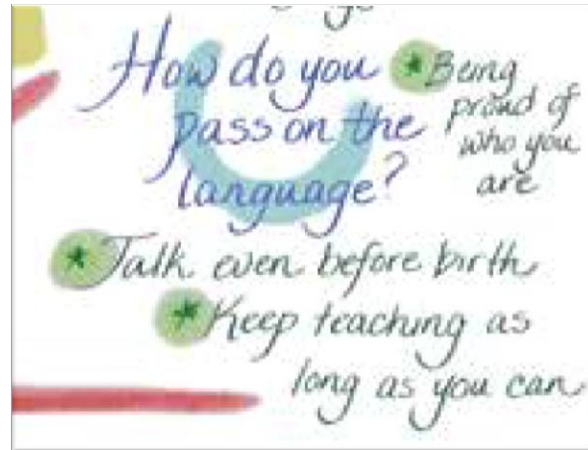 How do you
pass on the
language?
* Being
proud of
who you
are
* Talk even before birth
* Keep teaching as
long as you can